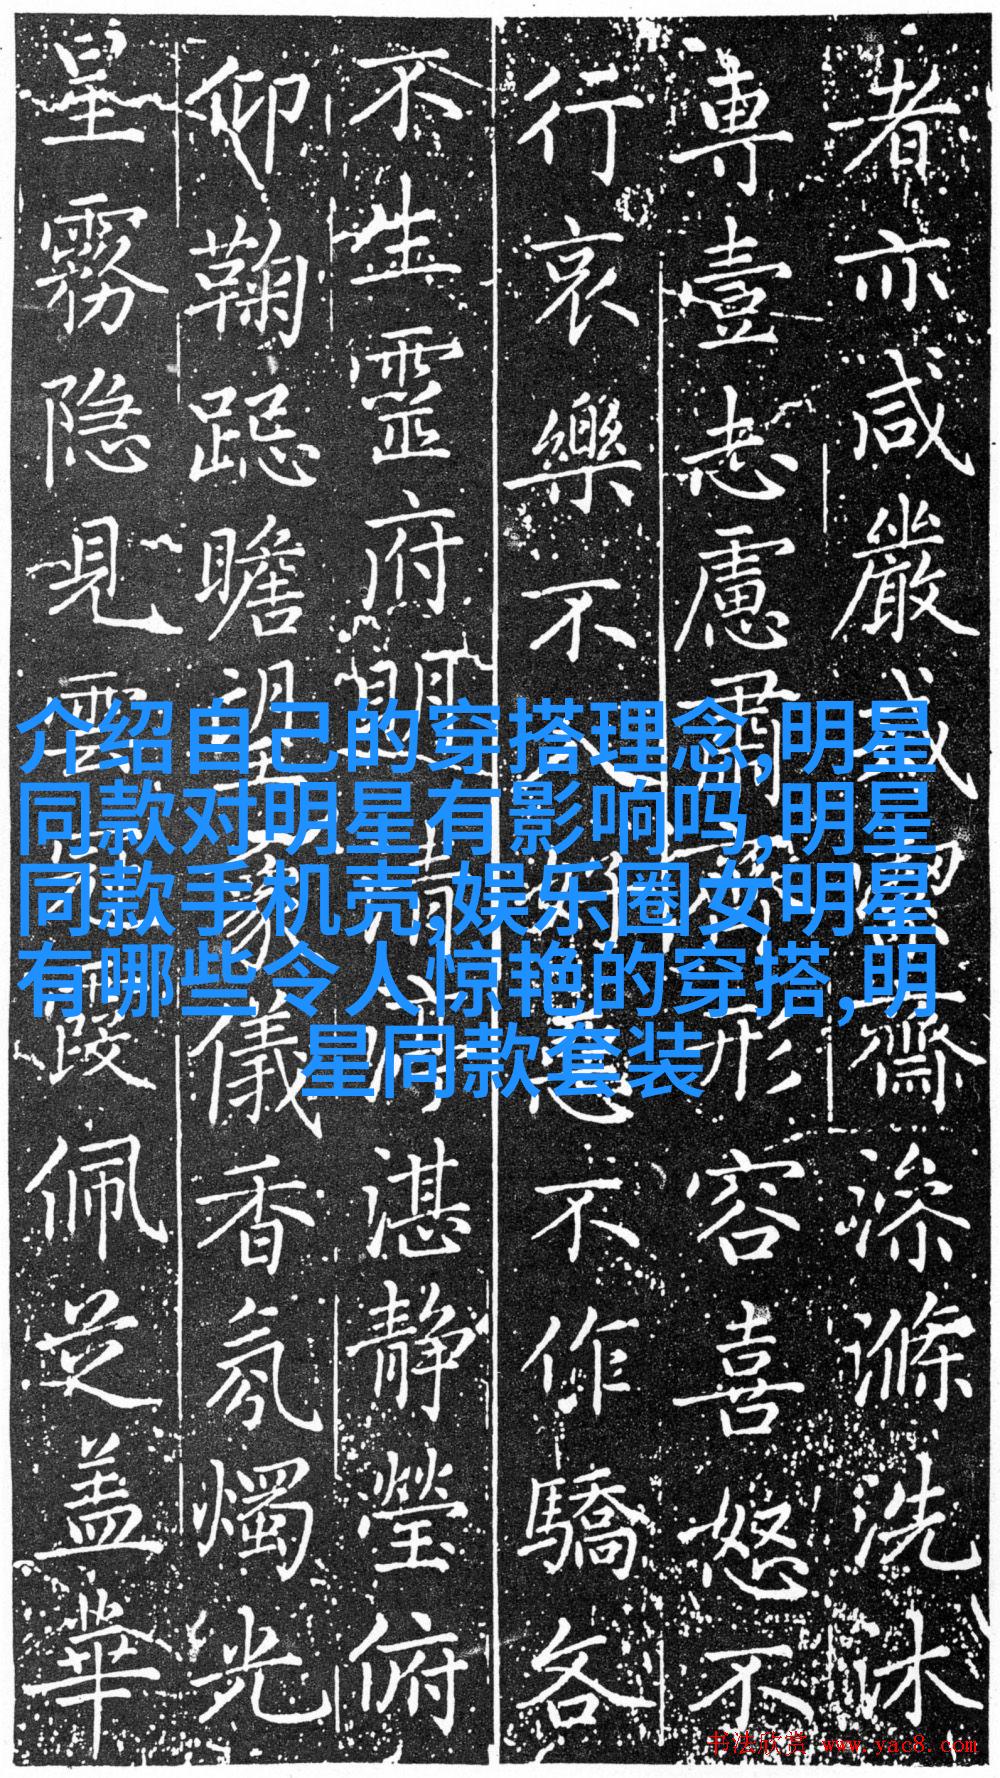 者亦咸嚴潔齋滌洗沐
專壹志慮肅形容喜怒不
行哀樂不不作驕各
不生靈府清湛静瑩俯
仰鞠跽瞻望儀香氛燭光
星霧隐見雲霞佩芝盖華
介绍自己的穿搭理念,明星
同款对明星有影响吗,明星
同款手机壳,娱乐圈女明星
有哪些令人惊艳的穿搭,明
星同款套装
书法欣赏 www.yac8.com